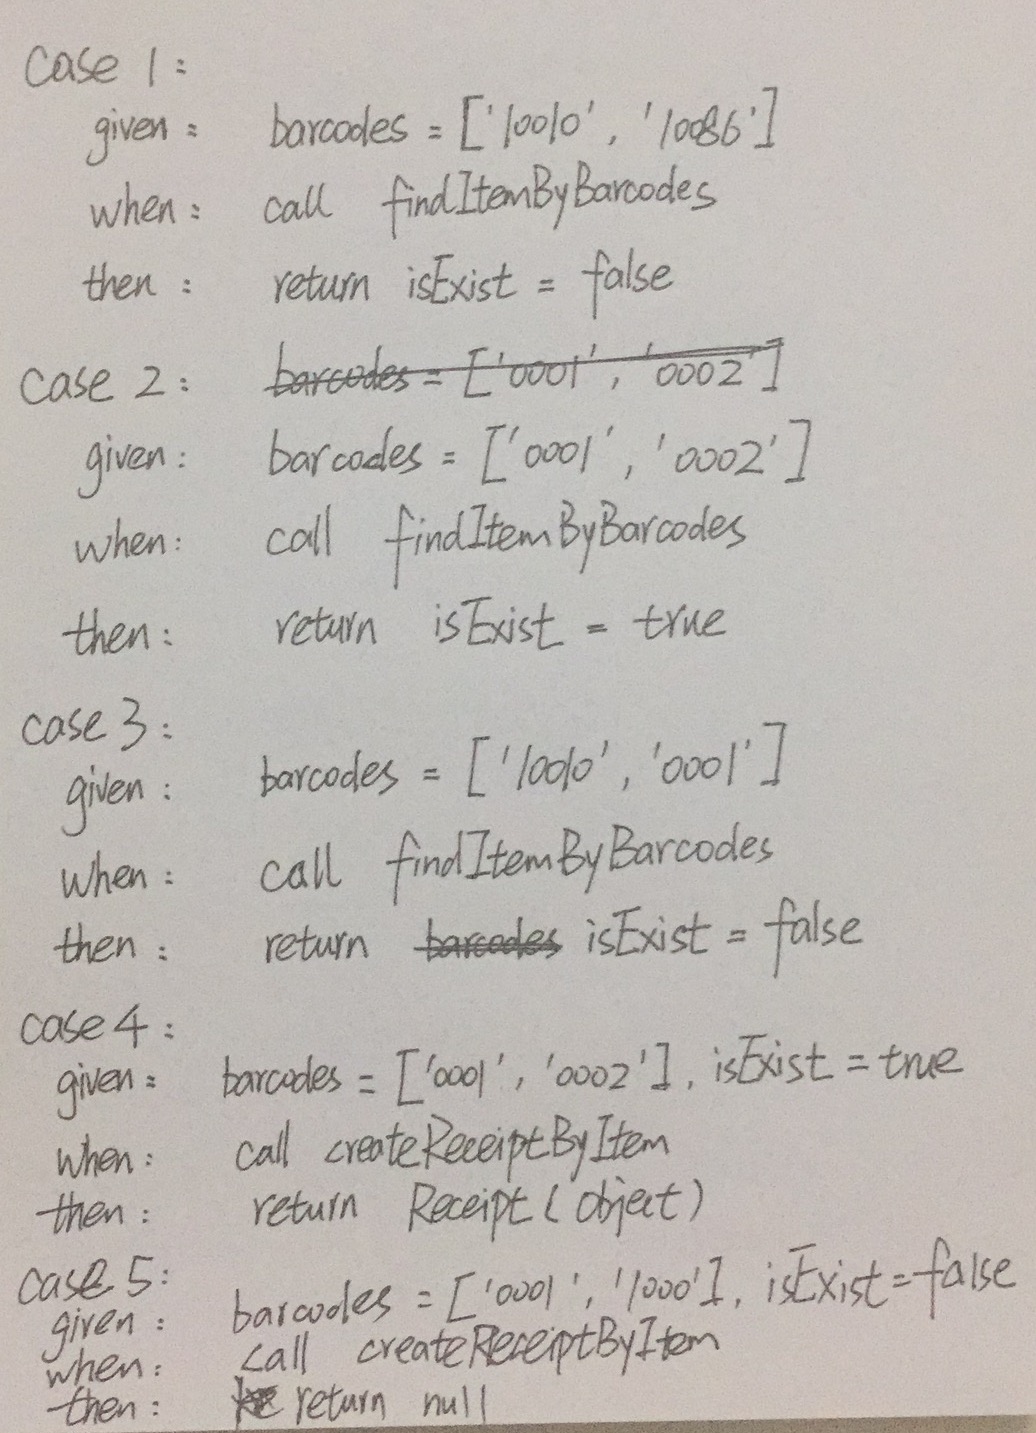 case 1:
given: barcodes = ['10010', '10086']
when: call findItemByBarcodes
then: return isExist = false
case 2: barcodes = ['0001', '0002']
given: barcodes = ['0001', '0002']
when: call findItemByBarcodes
then: return isExist = true
case 3:
given: barcodes = ['10010', '0001']
when: call findItemByBarcodes
then: return barcodes isExist = false
case 4:
given: barcodes = ['0001', '0002'], isExist = true
when: call createReceiptByItem
then: return Receipt (object)
case 5:
given: barcodes = ['0001', '1000'], isExist = false
when: call createReceiptByItem
then: return null